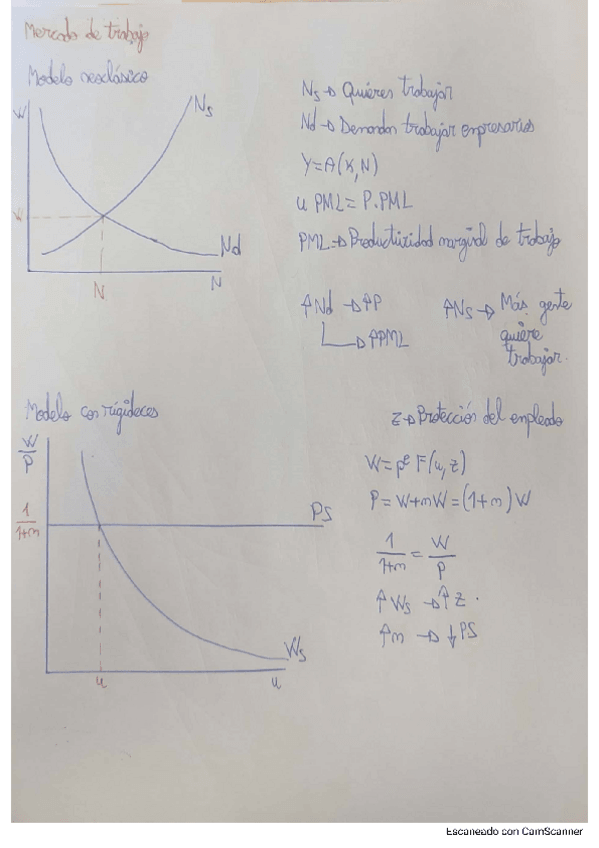 Mercado de trabajo
Modelo neoclásico
W
Ns
W
Nd
N
N
Ns → Quieres trabajar
Nd → Demandan trabajar empresarios
Y=A(K,N)
u PML = P.PML
PML → Productividad marginal de trabajo
↑Nd → ↑P
→ ↑PML
↑Ns → Más gente
quiere
trabajar.
Modelo con rigideces
W/P
1/1+m
PS
Ws
u
u
z → Protección del empleado
W = pe F(u,z)
P = W+mW = (1+m)W
1/1+m = W/P
↑Ws → ↑z.
↑m → ↓PS
Escaneado con CamScanner